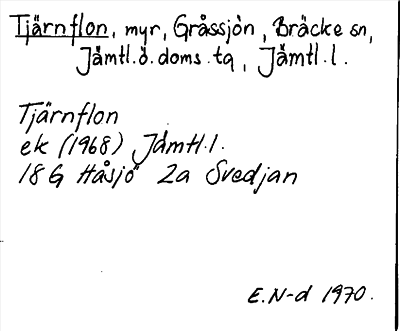 Tjärnflon, myr, Gråssjön, Bräcke sn,
Jämtl.ö.doms.tq, Jämtl.l.
Tjärnflon
ek (1968) Jämtl.l.
18G Håsjö 2a Svedjan
E.N-d 1970.